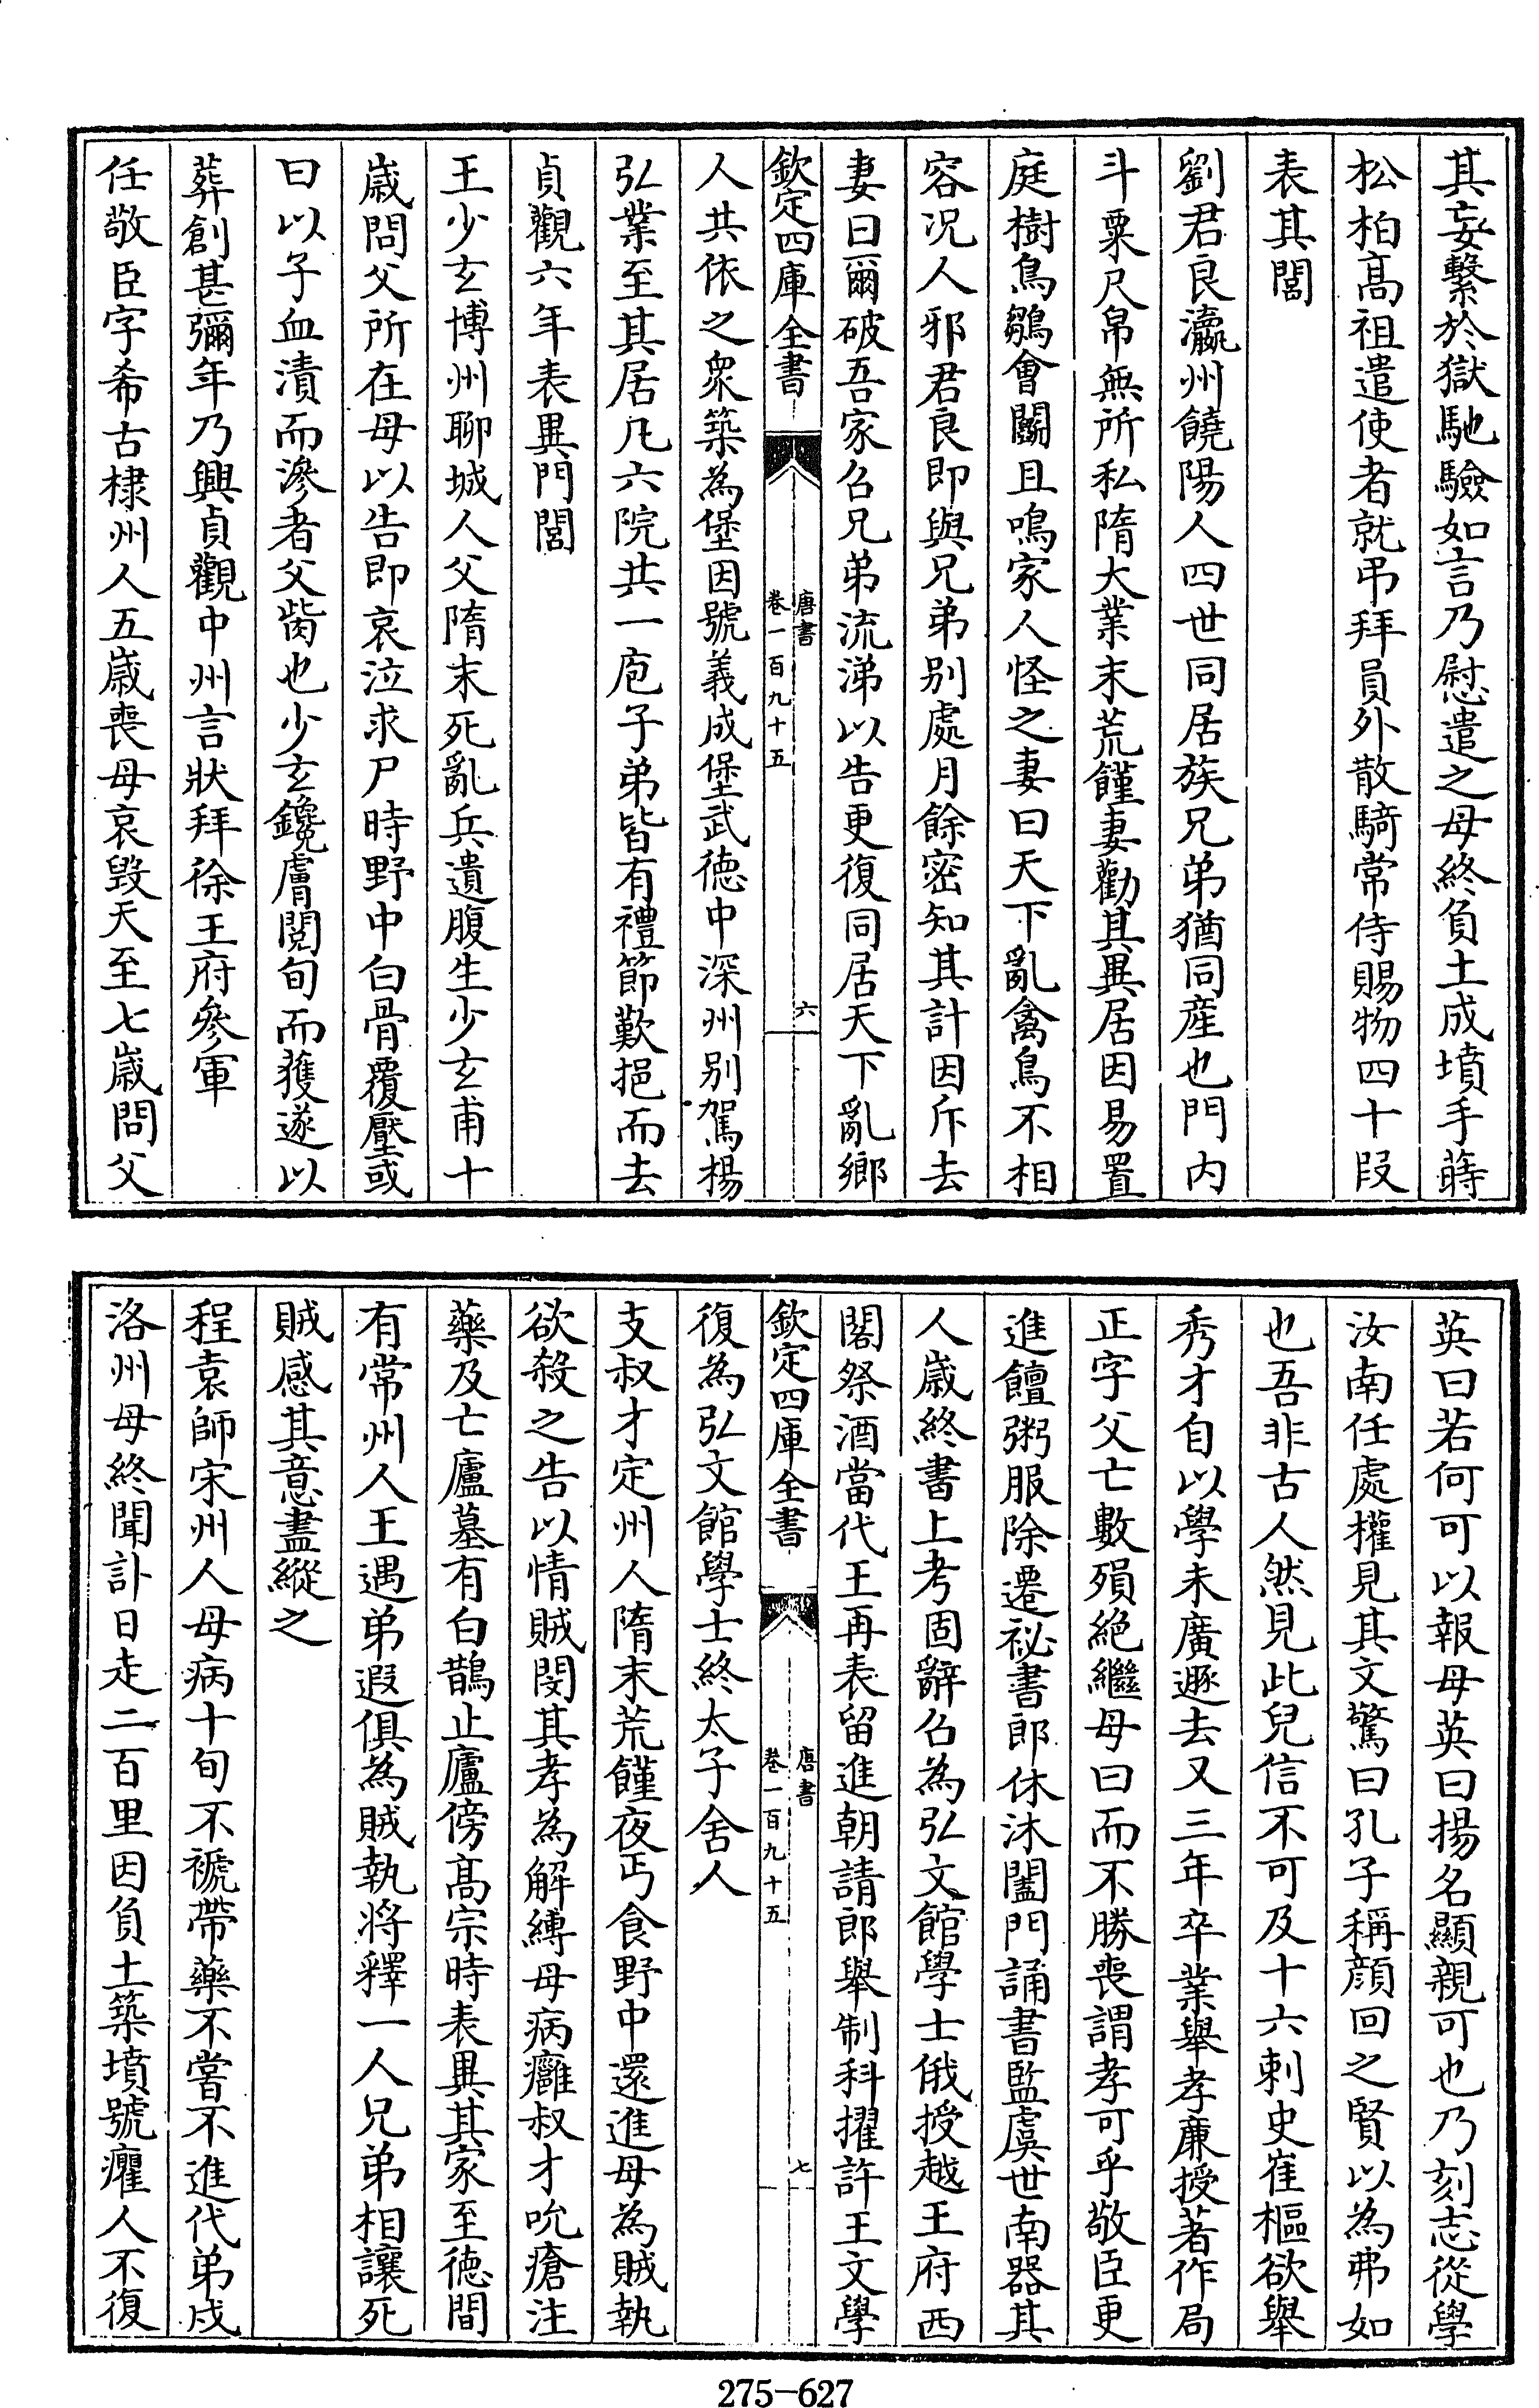 其妄繫於獄馳驗如言乃慰遣之母終負土成墳手蒔
松柏髙祖遣使者就弔拜員外散騎常侍賜物四十段
表其閭
劉君良瀛州饒陽人四世同居族兄弟猶同産也門内
斗粟尺帛無所私隋大業末荒饉妻勸其異居因易置
庭樹鳥雛會鬭且鳴家人怪之妻曰天下亂禽鳥不相
容况人邪君良即與兄弟别處月餘密知其計因斥去
妻曰爾破吾家召兄弟流涕以告更復同居天下亂鄉
欽定四庫全書
唐書
卷一百九十五
六
人共依之衆築為堡因號義成堡武徳中深州别駕楊
弘業至其居凡六院共一庖子弟皆有禮節歎挹而去
貞觀六年表異門閭
王少玄博州聊城人父隋末死亂兵遺腹生少玄甫十
歳問父所在母以告即哀泣求尸時野中白骨覆壓或
曰以子血漬而滲者父胔也少玄鑱膚閲旬而獲遂以
葬創甚彌年乃興貞觀中州言狀拜徐王府參軍
任敬臣字希古棣州人五歳喪母哀毁天至七歳問父
英曰若何可以報母英曰揚名顯親可也乃刻志從學
汝南任處權見其文驚曰孔子稱顔回之賢以為弗如
也吾非古人然見此兒信不可及十六刺史崔樞欲舉
秀才自以學未廣遯去又三年卒業舉孝廉授著作局
正字父亡數殞絶繼母曰而不勝喪謂孝可乎敬臣更
進饘粥服除遷祕書郎休沐闔門誦書監虞世南器其
人歳終書上考固辭召為弘文館學士俄授越王府西
閣祭酒當代王再表留進朝請郎舉制科擢許王文學
欽定四庫全書
唐書
卷一百九十五
七
復為弘文館學士終太子舍人
支叔才定州人隋末荒饉夜丐食野中還進母為賊執
欲殺之告以情賊閔其孝為解縛母病癰叔才吮瘡注
藥及亡廬墓有白鵲止廬傍髙宗時表異其家至徳間
有常州人王遇弟遐俱為賊執将釋一人兄弟相讓死
賊感其意盡縱之
程袁師宋州人母病十旬不褫帶藥不嘗不進代弟戍
洛州母終聞訃日走二百里因負土築墳號癯人不復
275-627